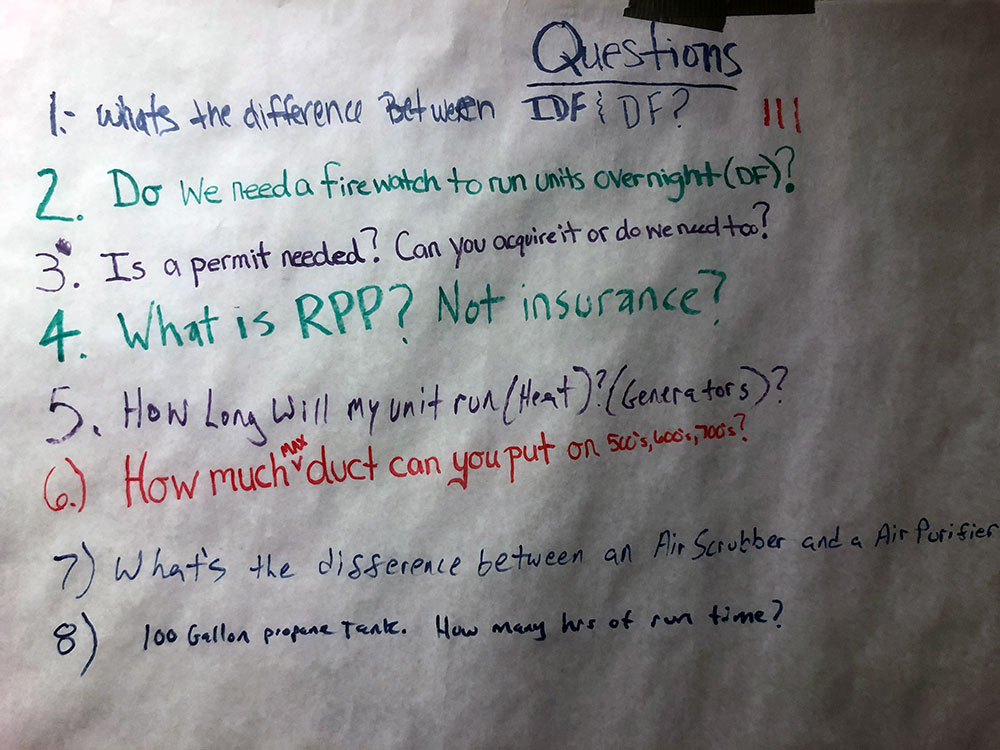 Questions
1.- Whats the difference Between IDF & DF? III
2. Do we need a firewatch to run units overnight (DF)?
3. Is a permit needed? Can you acquire it or do we need too?
4. What is RPP? Not insurance?
5. How Long Will my unit run (Heat)? (Generators)?
6.) How much MAX duct can you put on 500's, 600's, 700's?
7) What's the difference between an Air Scrubber and a Air Purifier
8) 100 Gallon propane Tank. How many hrs of run time?